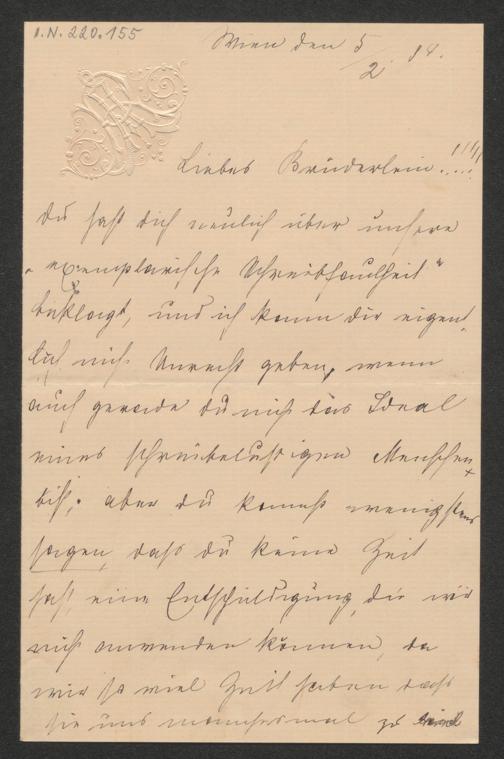 I.N. 220.155
Wien den 5/2. 84.
Liebes Brüderlein!!!!!
Du hast dich neulich über unsere
„exemplarische Schreibfaulheit"
beklagt, und ich kann dir eigent-
lich nicht Unrecht geben, wenn
auch gerade du nicht das Ideal
eines schreibelustigen Menschen
bist; aber du kannst wenigstens
sagen, dass du keine Zeit
hast, eine Entschuldigung, die wir
nicht anwenden können, da
wir so viel Zeit haben dass
sie uns manchesmal zu